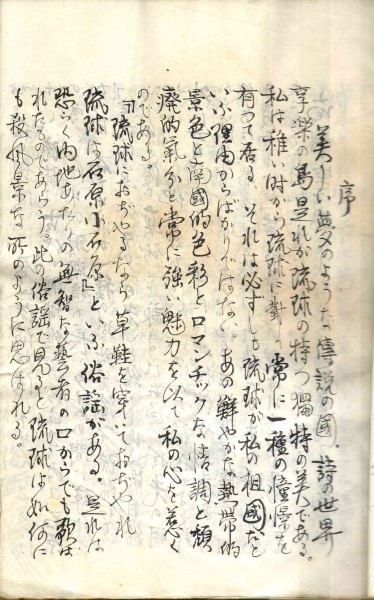 序
美しい夢のような傳説の國、詩の世界
享楽の島是れが琉球の持つ独特の美である。
私は稚い時から琉球に對し常に一種の憧憬を
有って居る それは必ずしも琉球が私の祖國だと
いふ理由からばかりではない。あの鮮やかな熱帯的
景色と南國的色彩とロマンチックな情調と頽
廃的氣分と常に強い魅力を以て私の心を惹く
のである。
『琉球におぢやるなら草鞋を穿いておぢやれ
琉球は石原小石原』といふ俗謡がある。是れは
恐らく内地あたりの無智な藝者の口からでも歌は
れたものであらう。此の俗謡で見ると琉球は如何に
も殺風景な所のように思はれる。